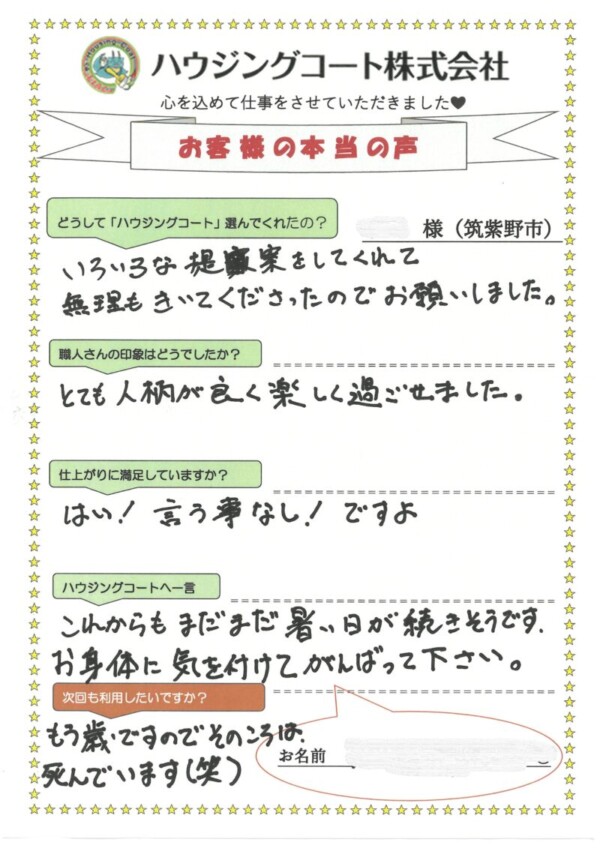 ハウジングコート株式会社
心を込めて仕事をさせていただきました♥
お客様の本当の声
どうして「ハウジングコート」選んでくれたの？
様（筑紫野市）
いろいろな提案をしてくれて
無理もきいてくださったのでお願いしました。
職人さんの印象はどうでしたか？
とても人柄が良く楽しく過ごせました。
仕上がりに満足していますか？
はい！言う事なし！ですよ
ハウジングコートへ一言
これからもまだまだ暑い日が続きそうです、
お身体に気を付けてがんばって下さい。
次回も利用したいですか？
もう歳ですのでそのころは、
死んでいます(笑)
お名前